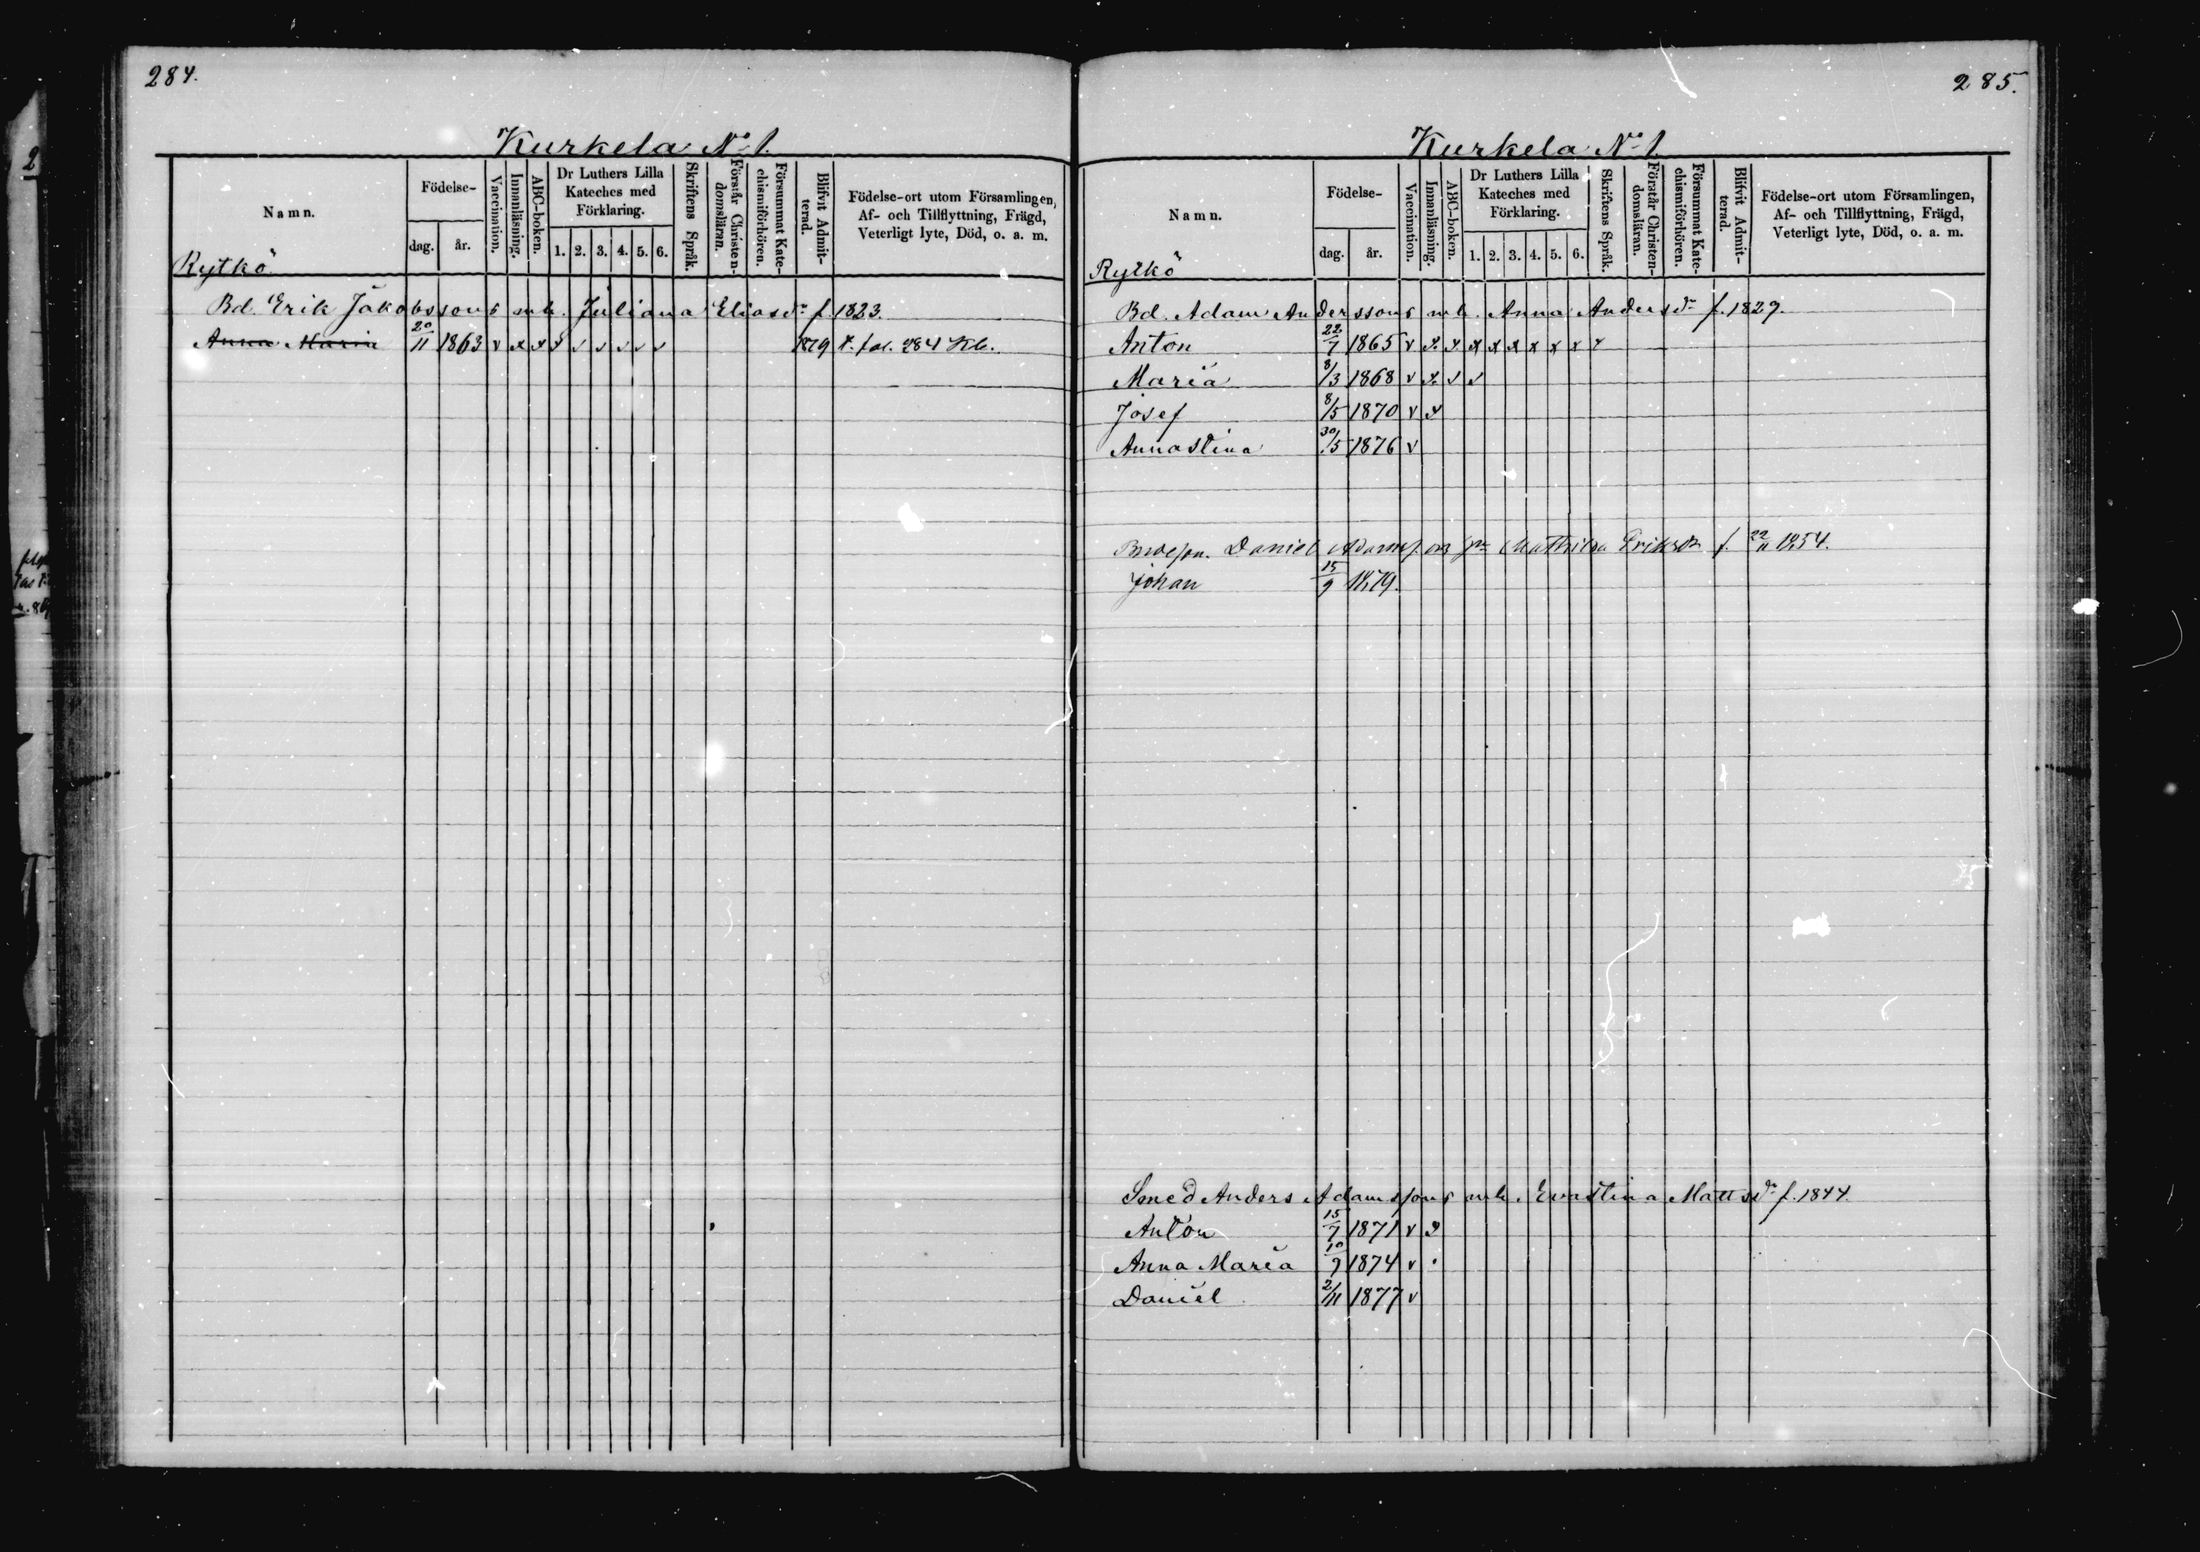 284.
Kurkela No 1.
Namn.
Födelse-
dag.
år.
Vaccination.
Innanläsning.
ABC-boken.
Dr Luthers Lilla
Kateches med
Förklaring.
1. 2. 3. 4. 5. 6.
Skriftens Språk.
Förstår Christen-
domsläran.
Försummat Kate-
chismiförhören.
Blifvit Admit-
terad.
Födelse-ort utom Församlingen,
Af- och Tillflyttning, Frägd,
Veterligt lyte, Död, o. a. m.
Rytkö
Bd. Erik Jakobssons mh. Juliana Eliasdr f. 1823.
Anna Maria 20/11 1863 v x x v v v v v v 1879 t. fol. 284 Kb.
285.
Kurkela No 1
Namn.
Födelse-
dag.
år.
Vaccination.
Innanläsning.
ABC-boken.
Dr Luthers Lilla
Kateches med
Förklaring.
1. 2. 3. 4. 5. 6.
Skriftens Språk.
Förstår Christen-
domsläran.
Försummat Kate-
chismiförhören.
Blifvit Admit-
terad.
Födelse-ort utom Församlingen,
Af- och Tillflyttning, Frägd,
Veterligt lyte, Död, o. a. m.
Rytkö
Bd. Adam Anderssons mh. Anna Andersdr f. 1829.
Anton 22/7 1865 v x x x x x x x x
Maria 8/3 1868 v x v v
Josef 8/5 1870 v x
Annastina 30/5 1876 v
Daniel Adamsson Mathilda Eriksdr f. 22/11 1854.
Johan 15/9 1879.
Smed Anders Adamssons mh. Evastina Mattsdr f. 1844.
Anton 15/7 1871 v
Anna Maria 10/9 1874 v
Daniel 2/11 1877 v